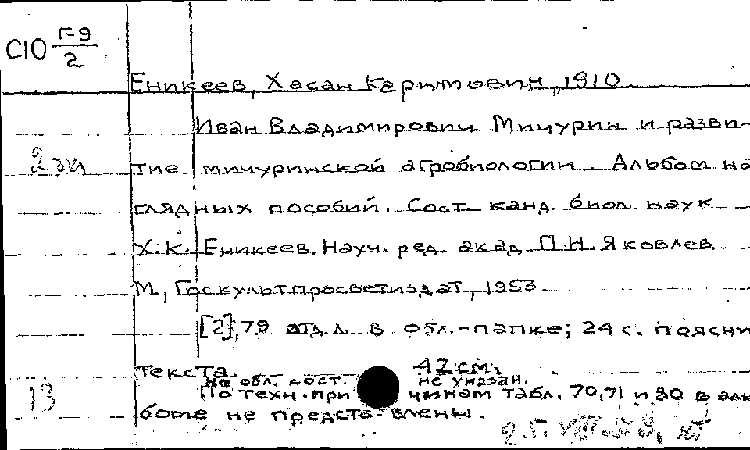 С10 Г-9
2
Еникеев, Хасан Каримович, 1910
Иван Владимирович Мичурин и разви-
2 экз тие мичуринской агробиологии. Альбом на-
глядных пособий. Сост. канд. биол. наук
Х.К. Еникеев. Науч. ред. акад. П.Н. Яковлев.
М., Госкультпросветиздат, 1953
[2], 79 отд. л. в обл.-папке; 24 с. поясни
текста. 42 см.
На обл. сост. не указан.
13 По техн. причинам табл. 70, 71 и 80 в аль
боме не представлены.